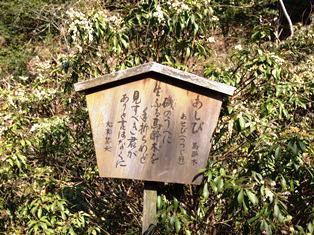 あしび 馬酔木
あせび(つつじ科)
磯の上に
生ふる馬酔木を
手折らめど
見すべき君が
ありと言はなくに
大伯皇女